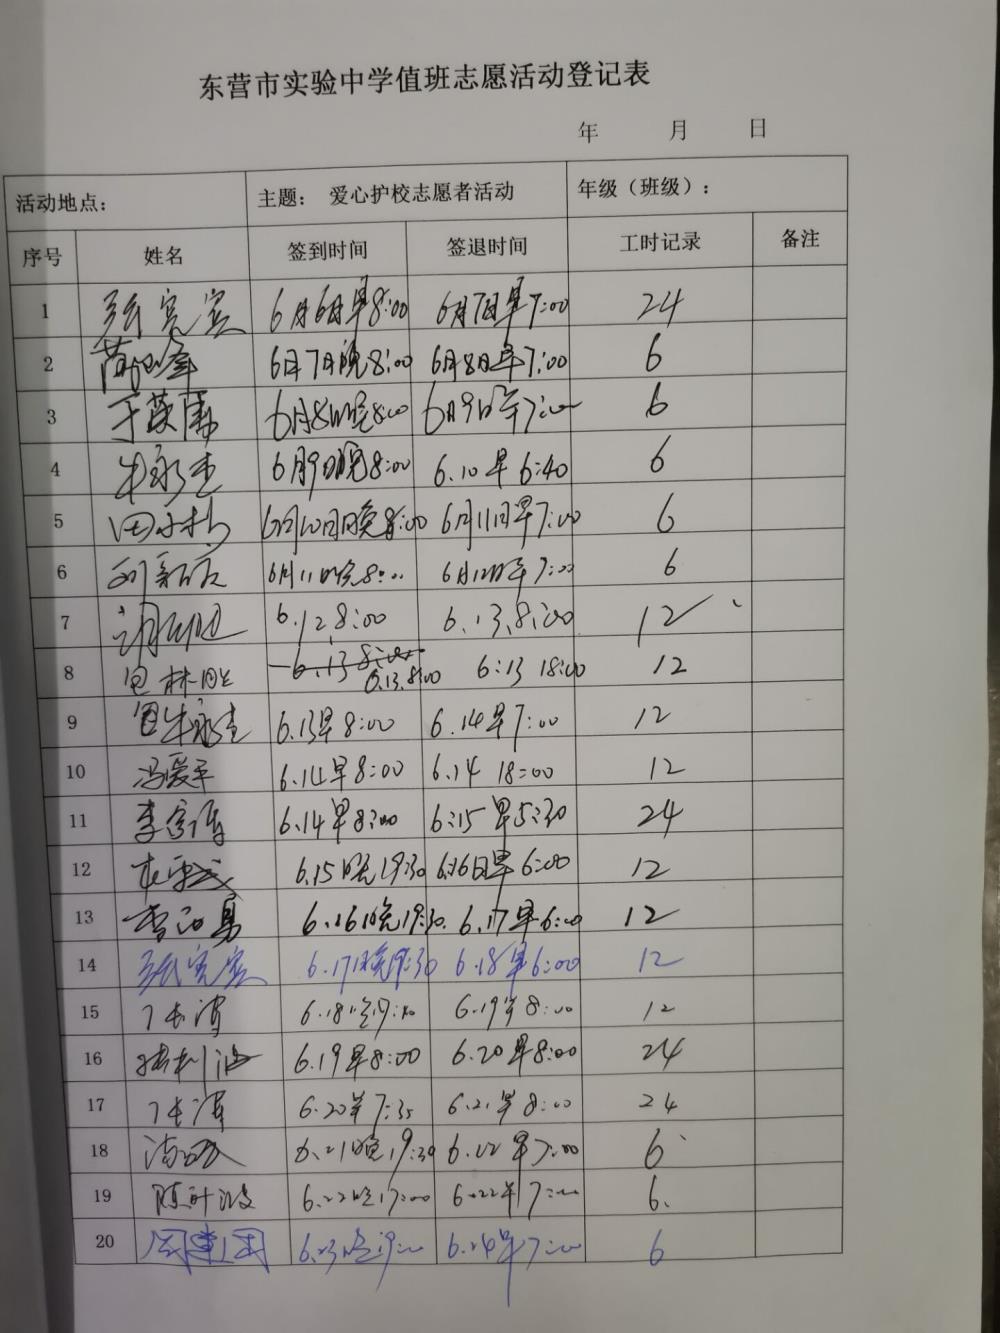 东营市实验中学值班志愿活动登记表
年 月 日
活动地点： 主题： 爱心护校志愿者活动 年级（班级）：
序号 姓名 签到时间 签退时间 工时记录 备注
1 张宪宾 6月6日早8:00 6月7日早7:00 24
2 6月7日晚8:00 6月8日早7:00 6
3 于英 6月8日晚8:00 6月9日早7:00 6
4 牛永圭 6月9日晚8:00 6.10早6:40 6
5 田 6月10日晚8:00 6月11日早7:00 6
6 刘 6月11日晚8:00 6月12日早7:00 6
7 6.12.8:00 6.13.8:00 12
8 林 6.13 8:00 6.13.8:00 6:13 18:00 12
9 牛永圭 6.13早8:00 6.14早7:00 12
10 冯爱平 6.14早8:00 6.14 18:00 12
11 李 6.14早8:00 6:15早5:30 24
12 6.15晚19:30 6.16日早6:00 12
13 6.16晚19:30. 6.17早6:00 12
14 张宪宾 6.17晚19:30 6.18早6:00 12
15 6.18晚 6.19早8:00 12
16 6.19早8:00 6.20早8:00 24
17 6.20早7:35 6.21早8:00 24
18 6.21晚19:30 6.22早7:00 6
19 陈 6.22晚17:00 6.22早7:00 6.
20 周建国 6.23晚19:00 6.24早7:00 6